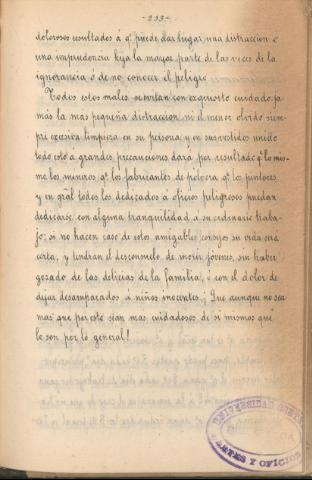 -233-
dolorosos resultados á qᵉ puede dar lugar una distraccion ó
una imprudencia hija la mayor parte de las veces de la
ignorancia ó de no conocer el peligro.
Todos estos males se evitan con exquisito cuidado: ja-
más la mas pequeña distraccion ni el menor olvido siem-
pre excesiva limpieza en su persona y en sus vestidos unido
todo esto a grandes precauciones dará por resultado qᵉ lo mis-
mo los mineros qᵉ los fabricantes de polvora qᵉ los pintores
y en gral todos los dedicados á oficios peligrosos puedan
dedicarse con alguna tranquilidad á su ordinario traba-
jo; si no hacen caso de estos amigables consejos su vida será
corta, y tendran el desconsuelo de morir jóvenes, sin haber
gozado de las delicias de la familia, ó con el dolor de
dejar desamparados á niños inocentes. ¡Que aunque no sea
mas que por esto sean mas cuidadosos de si mismos que
lo son por lo general!
UNIVERSIDAD
ARTES Y OFICIOS